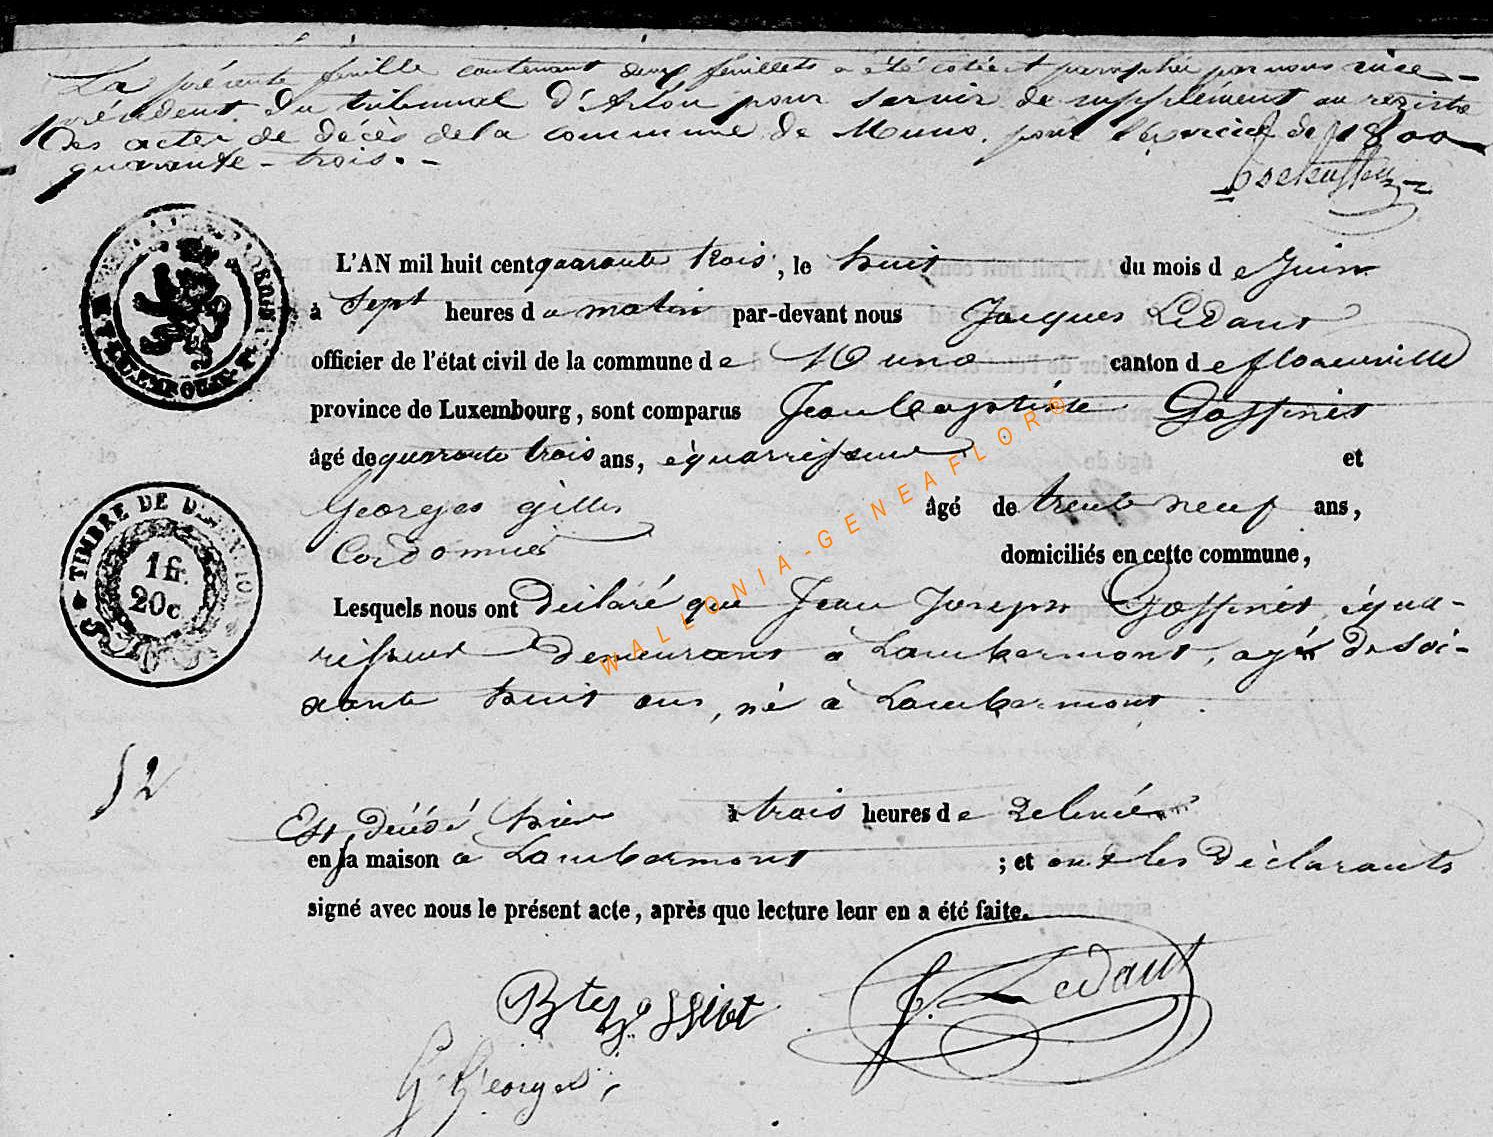 La présente feuille contenant deux feuillets a été cotée et paraphée par nous vice-
président du tribunal d'Arlon pour servir de supplément au registre
des actes de décès de la commune de Muno, pour l'exercice de 1800
quarante-trois.-
L'AN mil huit cent quarante trois, le huit du mois de Juin
à Sept heures du matin par-devant nous Jacques Ledant
officier de l'état civil de la commune de Muno canton de florenville
province de Luxembourg, sont comparus Jean Baptiste Gossinet
âgé de quarante trois ans, équarrisseur et
Georges gilles âgé de trente neuf ans,
Cordonnier domiciliés en cette commune,
Lesquels nous ont Déclaré que Jean Joseph Gossinet, équa-
risseur demeurant à Lambermont, agé de soi-
xante huit ans, né à Lambermont.
52
Est décédé hier à trois heures de relevée
en sa maison à Lambermont ; et ont les Déclarants
signé avec nous le présent acte, après que lecture leur en a été faite.
Bte gossinet J. Ledant
G. Georges
TIMBRE DE DIMENSION
1 fr.
20 c
WALLONIA-GENEAFLOR®